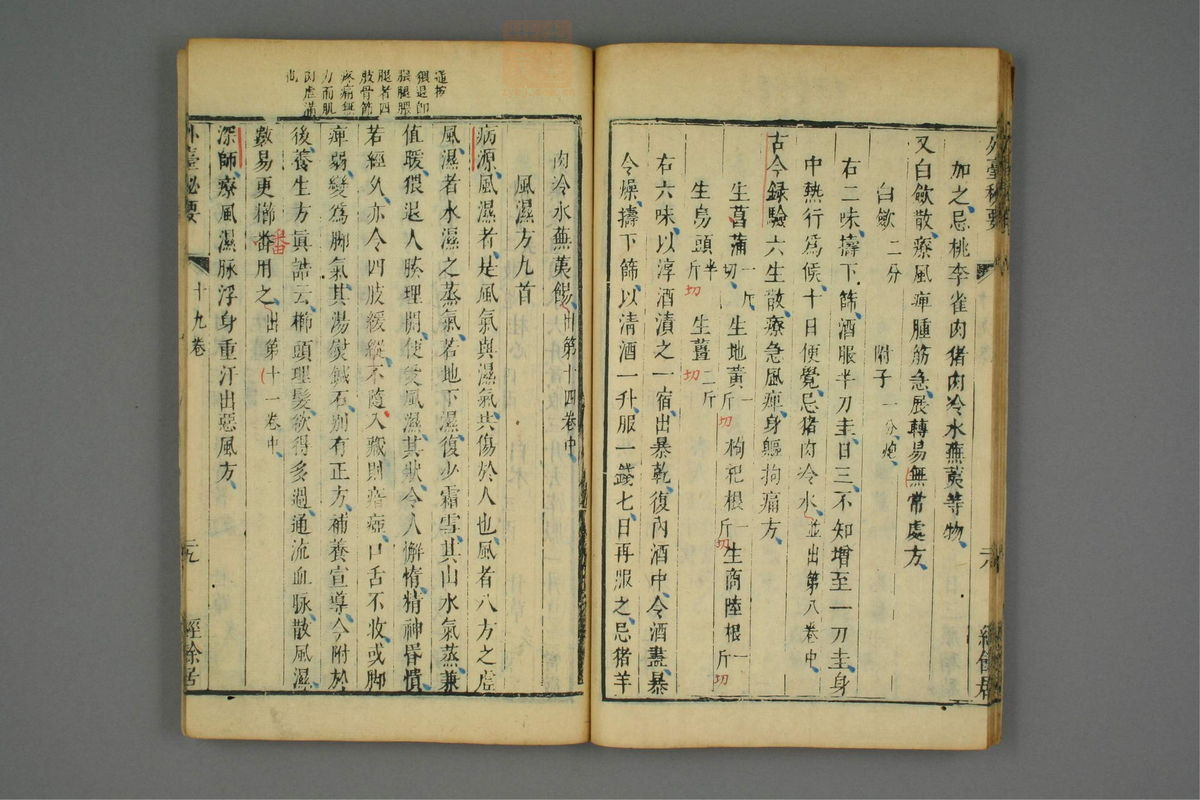 加之忌桃李雀肉猪肉冷水蕪荑等物
又白斂散療風痺腫筋急展轉易無常處方
白斂二分 附子一分炮
右二味擣下篩酒服半刀圭日三不知增至一刀圭身
中熱行為候十日便覺忌猪肉冷水並出第八卷中
古今録驗六生散療急風痺身軀拘痛方
生菖蒲一斤切 生地黃一斤切 枸杞根一斤切 生商陸根一斤切
生烏頭半斤切 生薑二斤切
右六味以淳酒漬之一宿出暴乾復內酒中令酒盡暴
令燥擣下篩以清酒一升服一錢七日再服之忌猪羊
肉冷水蕪荑餳出第十四卷中
風濕方九首
病源風濕者是風氣與濕氣共傷於人也風者八方之虛
風濕者水濕之蒸氣若地下濕復少霜雪其山水氣蒸兼
值暖猥退人腠理開便受風濕其狀令人懈惰精神昏憒
若經久亦令四肢緩縱不隨入藏則瘖瘂口舌不收或脚
痺弱變為脚氣其湯熨鍼石別有正方補養宣導今附於
後養生方真誥云櫛頭理髮欲得多過通流血脉散風濕
數易更櫛番用之出第十一卷中
番
深師療風濕脉浮身重汗出惡風方
外臺秘要
十九卷
經餘居
外臺秘要
經餘居